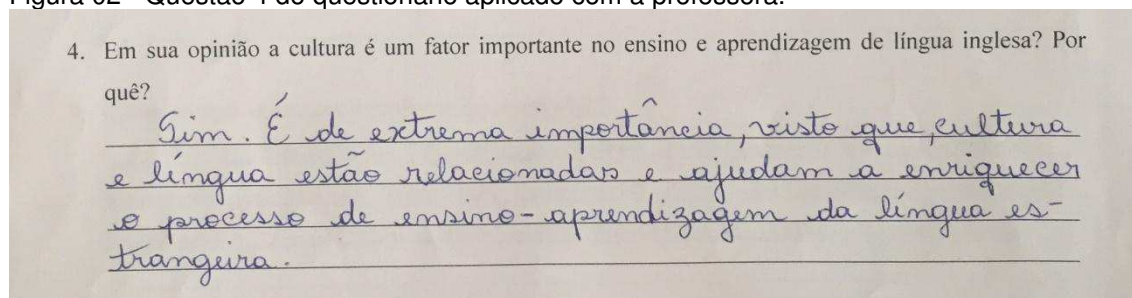 Figura 02 - Questão 4 do questionário aplicado com a professora.
4. Em sua opinião a cultura é um fator importante no ensino e aprendizagem de língua inglesa? Por
quê?
Sim. É de extrema importância, visto que, cultura
e língua estão relacionadas e ajudam a enriquecer
o processo de ensino-aprendizagem da língua es-
trangeira.